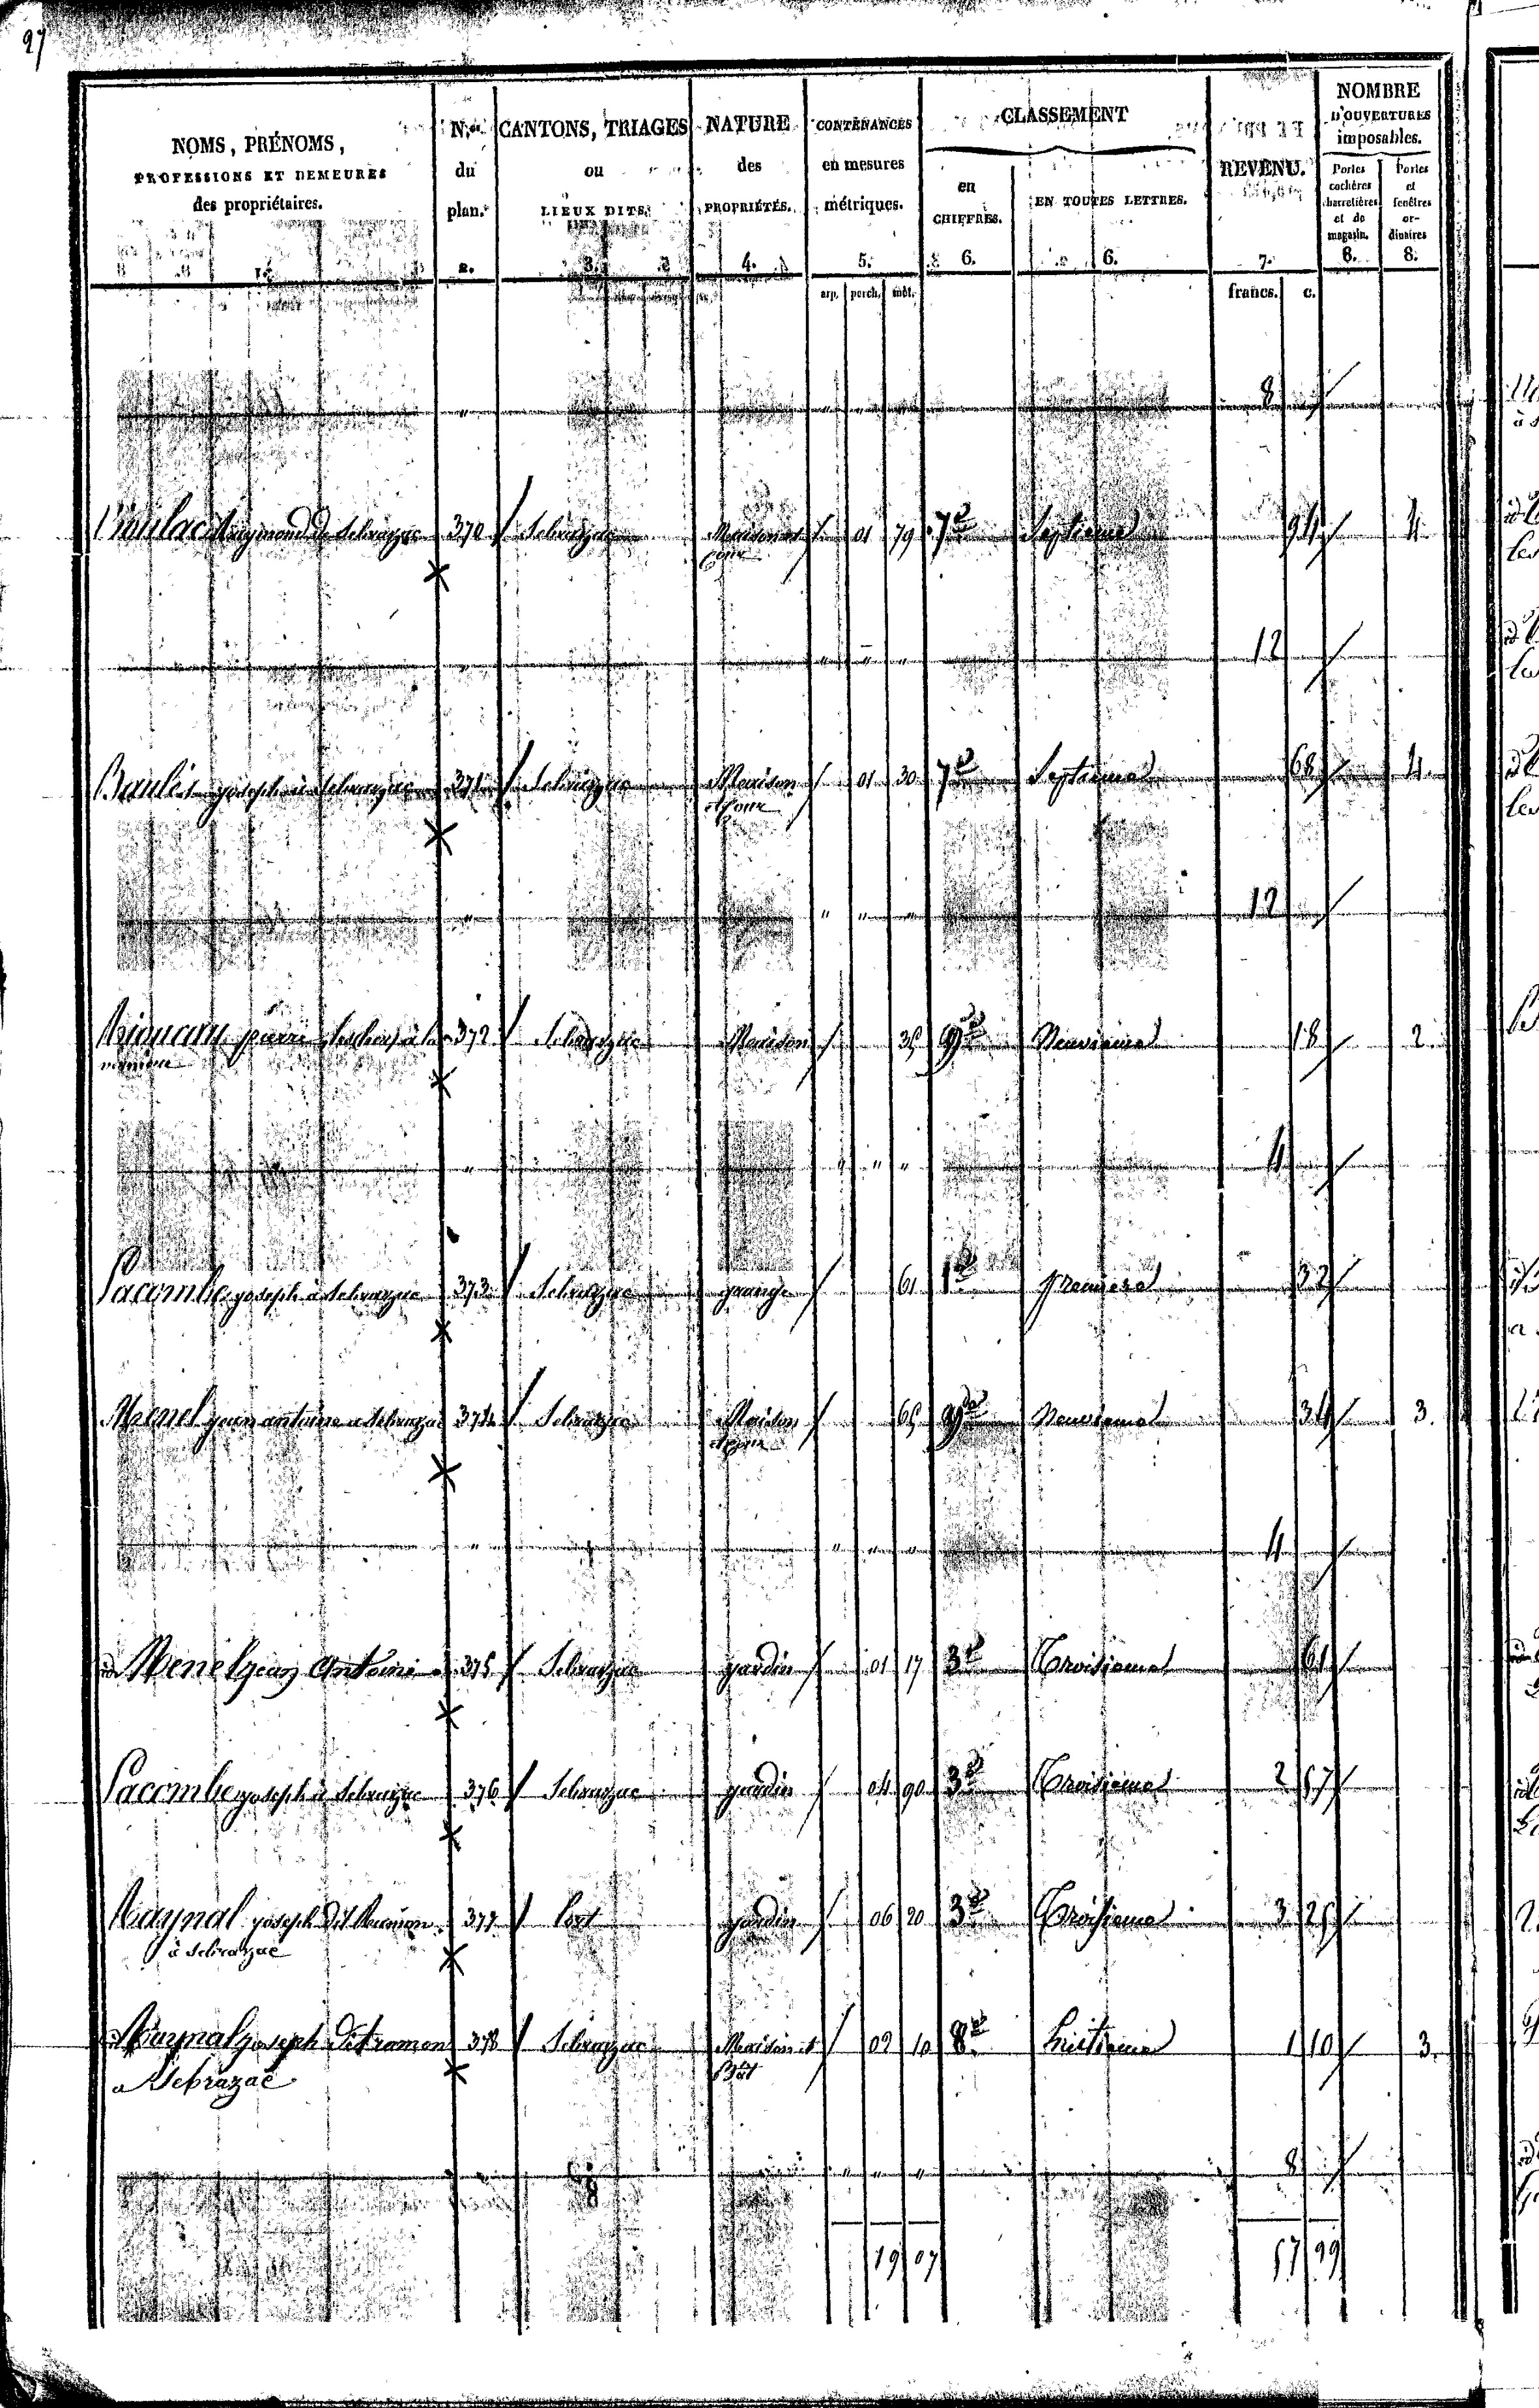 97
NOMS, PRÉNOMS, PROFESSIONS ET DEMEURES des propriétaires. 1.
N.os du plan. 2.
CANTONS, TRIAGES ou LIEUX DITS. 3.
NATURE des PROPRIÉTÉS. 4.
CONTENANCES en mesures métriques. 5.
CLASSEMENT
en CHIFFRES. 6.
EN TOUTES LETTRES. 6.
REVENU. 7.
NOMBRE D'OUVERTURES imposables.
Portes cochères charretières et de magasin. 8.
Portes et fenêtres ordinaires 8.
arp. perch. mèt. francs. c.
" " " " 8
Raymond de Sebrazac 370 Sebrazac Maison et cour 01 79 7e Septieme 94 4
" " " " 12
Baulès joseph à Sebrazac 371 Sebrazac Maison et cour 01 30 7e Septieme 68 4
" " " " 12
pierre 372 Sebrazac Maison 35 9e Neuvieme 18 2
" " " " 4
Lacombe joseph à Sebrazac 373 Sebrazac grange 61 1e premiere 32
jean antoine a Sebrazac 374 Sebrazac Maison et cour 65 9e Neuvieme 34 3
" " " " 4
id Menel jean Antoine 375 Sebrazac jardin 01 17 3e Troisieme 61
Lacombe joseph à Sebrazac 376 Sebrazac jardin 04 90 3e Troisieme 2 57
Raynal joseph dit 377 Port jardin 06 20 3e Troisieme 3 25
à Sebrazac
Raynal joseph dit ramon 378 Sebrazac Maison et Bât 02 10 8e huitieme 1 10 3
a Sebrazac
" " " 8
19 07 57 99